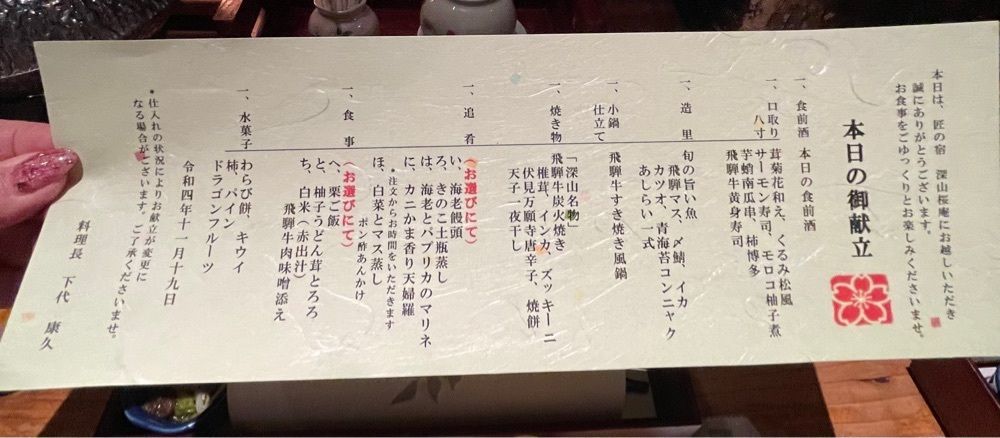 本日は、匠の宿 深山桜庵にお越しいただき
誠にありがとうございます。
お食事をごゆっくりとお楽しみくださいませ。
本日の御献立
一、食前酒 本日の食前酒
一、口取り 茸菊花和え、くるみ松風
八寸 サーモン寿司、モロコ柚子煮
芋蛸南瓜串、柿博多
飛騨牛黄身寿司
一、造里 旬の旨い魚
飛騨マス、〆鯖、イカ
カツオ、青海苔コンニャク
あしらい一式
一、小鍋仕立て 飛騨牛すき焼き風鍋
一、焼き物 「深山名物」
飛騨牛炭火焼き
椎茸、インカ、ズッキーニ
伏見万願寺唐辛子、焼餅
天子一夜干し
一、追肴 (お選びにて)
い、海老饅頭
ろ、きのこ土瓶蒸し
は、海老とパプリカのマリネ
に、カニかま香り天婦羅
*注文からお時間をいただきます
ほ、白菜とマス蒸し
ポン酢あんかけ
一、食事 (お選びにて)
へ、栗ご飯
と、柚子うどん茸とろろ
ち、白米(赤出汁)
飛騨牛肉味噌添え
一、水菓子 わらび餅、キウイ
柿、パイン
ドラゴンフルーツ
令和四年十一月十九日
*仕入れの状況によりお献立が変更に
なる場合がございます。ご了承くださいませ。
料理長 下代 康久